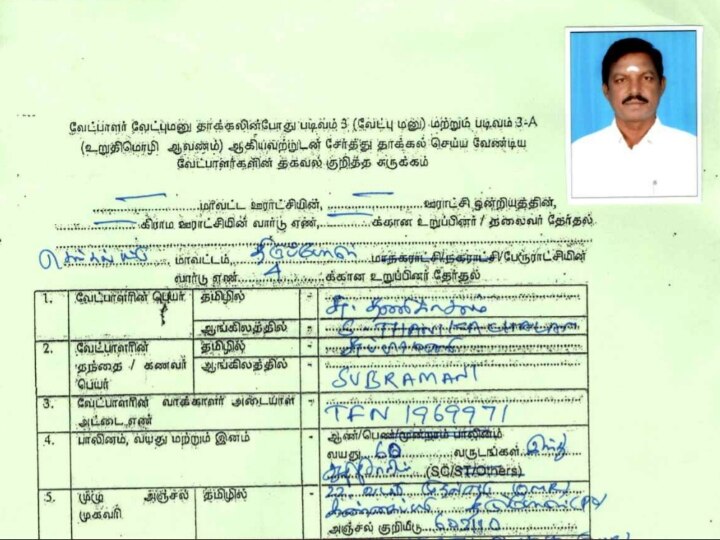 வேட்பாளர் வேட்புமனு தாக்கலின்போது படிவம் 3 (வேட்பு மனு) மற்றும் படிவம் 3-A
(உறுதிமொழி ஆவணம்) ஆகியவற்றுடன் சேர்த்து தாக்கல் செய்ய வேண்டிய
வேட்பாளர்களின் தகவல் குறித்த சுருக்கம்
மாவட்ட ஊராட்சியின், ஊராட்சி ஒன்றியத்தின்,
கிராம ஊராட்சியின் வார்டு எண், க்கான உறுப்பினர் / தலைவர் தேர்தல்.
மாவட்டம், மாநகராட்சி/நகராட்சி/பேரூராட்சியின்
வார்டு எண் 4 க்கான உறுப்பினர் தேர்தல்
1. வேட்பாளரின் பெயர் தமிழில் -
ஆங்கிலத்தில் - S. THANIGACHALAM
2. வேட்பாளரின் தந்தை / கணவர் பெயர் தமிழில் - சுப்பிரமணி
ஆங்கிலத்தில் - SUBRAMANI
3. வேட்பாளரின் வாக்காளர் அடையாள அட்டை எண் - TFN 1969971
4. பாலினம், வயது மற்றும் இனம் - ஆண்/பெண்/மூன்றாம் பாலினம்
வயது 60 வருடங்கள் இந்து
(SC/ST/Others)
5. முழு அஞ்சல் முகவரி தமிழில் - 22
அஞ்சல் குறியீடு 602110